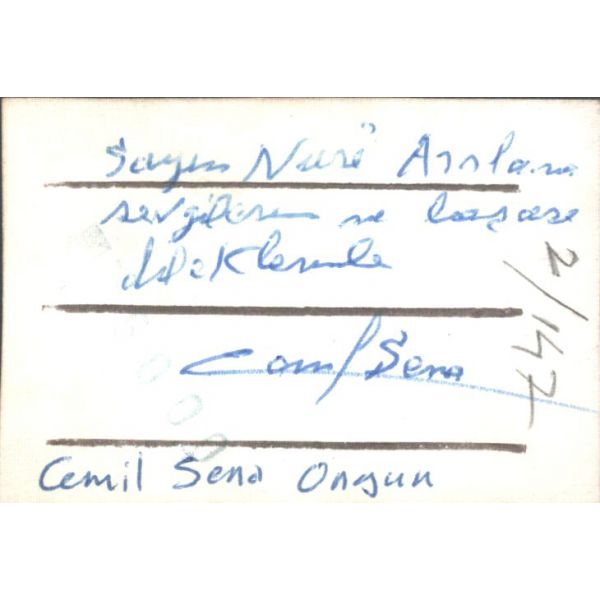 Sayın Nuri Arslana
sevgilerim ve başarı
dileklerimle
Cemil Sena
Cemil Sena Ongun
2/147